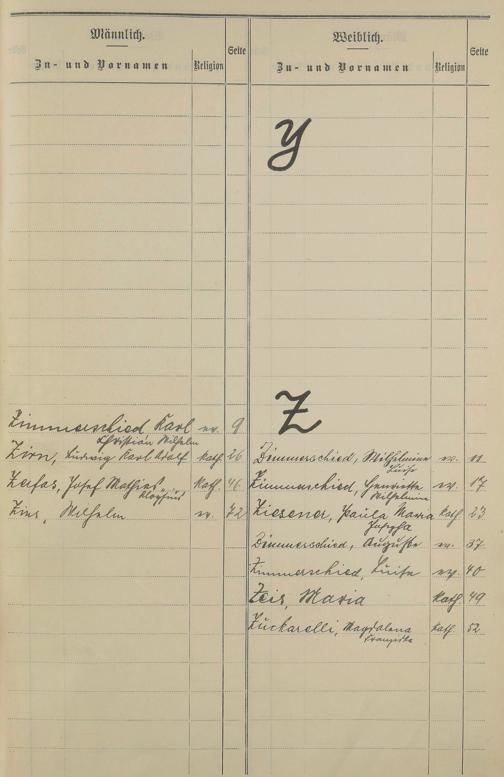 Männlich.
Zu- und Vornamen
Religion
Seite
Zimmerschied Karl ev. 9
Christian Wilhelm
Zirn, Ludwig Karl Adolf kath. 26
Josef Mathias kath. 46
Wilhelm ev. 72
Weiblich.
Zu- und Vornamen
Religion
Seite
Y
Z
Zimmerschied, Wilhelmine ev. 11
Luise
Zimmerschied, Henriette ev. 17
Wilhelmine
Ziesener, Maria kath. 23
Josepha
Zimmerschied, Auguste ev. 37
Zimmerschied, Luise ev. 40
Zeis, Maria kath. 49
Zuckarelli, Magdalena kath. 52
Franziska